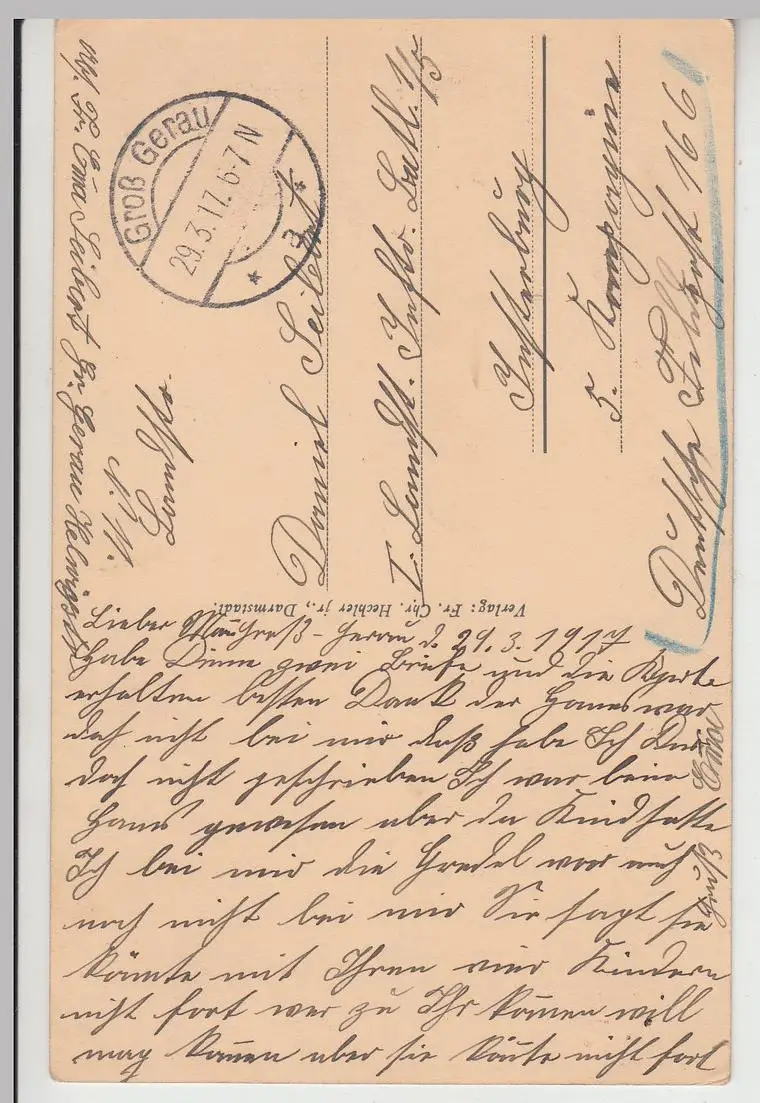 Groß Gerau
29.3.17. 6-7 N
* a *
Abs. Fr. Ema Seibert Gr. Gerau Helwigstr
Daniel Seibert
I. Landst. Inftr. Batl. 1/5
Insterburg
5. Kompagnie
Deutsche Feldpost 166
Verlag: Fr. Chr. Hechler jr., Darmstadt.
Lieber Groß-Gerau d. 29.3.1917
Habe Deine zwei Briefe und die Karte
erhalten besten Dank der Hans war
doch nicht bei mir daß habe Ich Dir
doch nicht geschrieben Ich war beim
Hans gewesen aber die Kind hatte
Ich bei mir die Gredel war auch
noch nicht bei mir Sie sagt sie
könnte mit Ihren vier Kindern
nicht fort wer zu Ihr kommen will
mag kommen aber sie könnte nicht fort
Gruß Ema